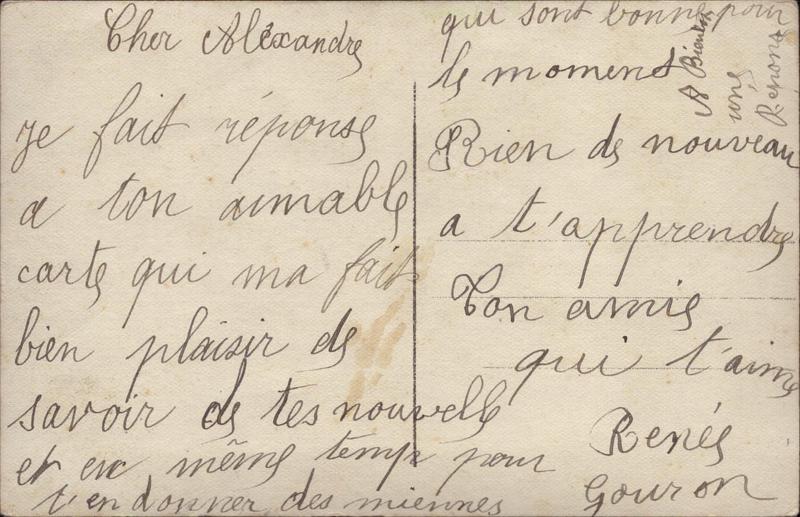 Cher Aléxandre
je fait réponse
a ton aimable
carte qui ma fait
bien plaisir de
savoir de tes nouvelle
et en même temp pour
t'en donner des miennes
qui sont bonne pour
le moment
Rien de nouveau
a t'apprendre
Ton amie
qui t'aime
Renée
Gouron
A Bientot
une
Réponse